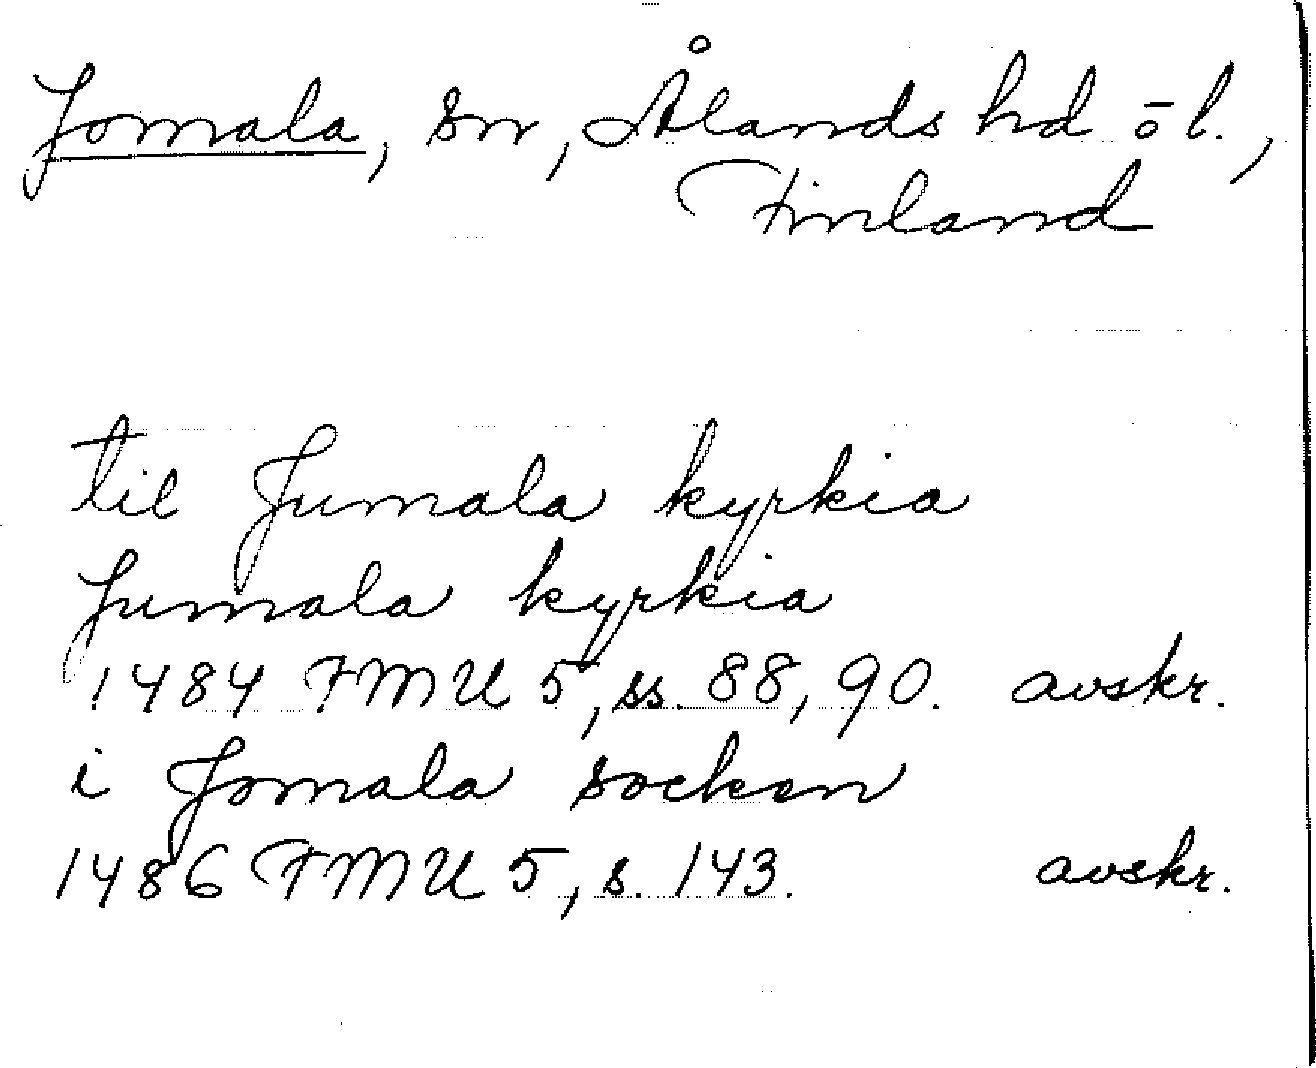 Jomala, sn, Ålands hd öl.,
Finland
til Jumala kyrkia
Jumala kyrkia
1484 FMU 5, ss. 88, 90. avskr.
i Jomala socken
1486 FMU 5, s. 143. avskr.